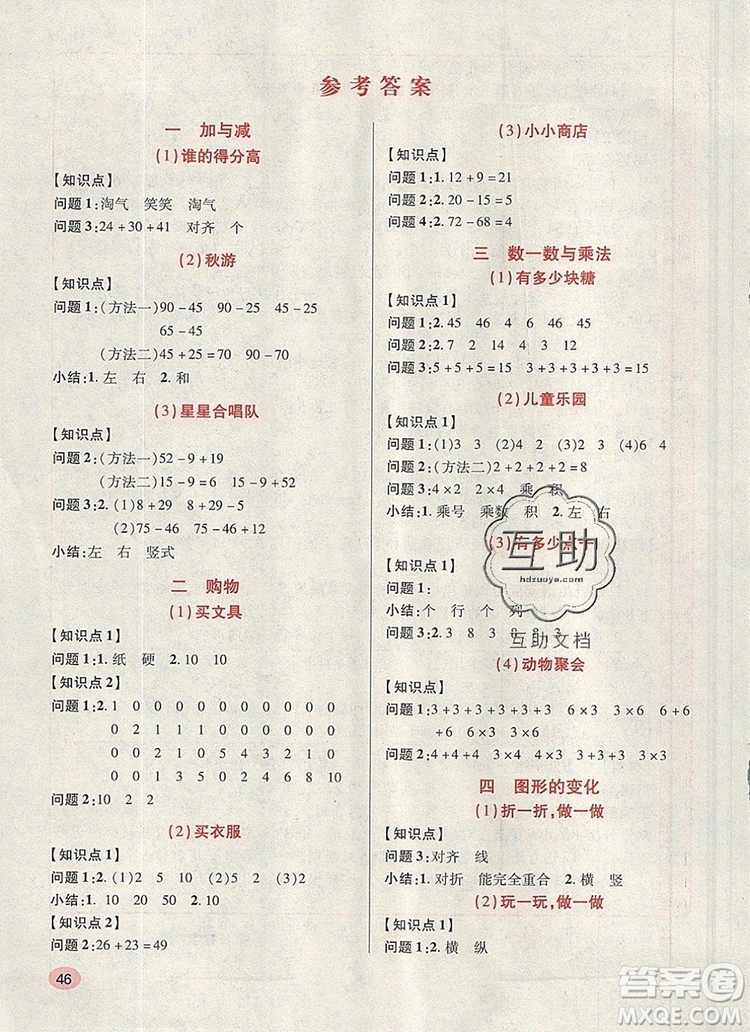 参考答案
一 加与减
(1)谁的得分高
【知识点】
问题1:淘气 笑笑 淘气
问题3:24+30+41 对齐 个
(2)秋游
【知识点】
问题1:(方法一)90-45 90-30 45-25
65-45
(方法二)45+25=70 90-70=20
小结:1.左 右 2.和
(3)星星合唱队
【知识点】
问题2:(方法一)52-9+19
(方法二)15-9=6 52+6
问题3:2.(1)8+29 8+29-5
(2)75-46 75-46+39
小结:左 右 竖式
二 购物
(1)买文具
【知识点1】
问题1:1.纸 硬 2.10 10
【知识点2】
问题1:2.1 0 0 0 0 0 0 0 0 0
0 2 1 1 1 0 0 0 0 0
0 0 2 1 0 5 4 3 2 1 0
0 0 1 3 5 0 2 4 6 8 10
问题2:10 2 2
(2)买衣服
【知识点1】
问题1:2.(1)2 5 10 (2)5 (3)2
小结:1.10 20 50 2.10
【知识点2】
问题2:26+23=49
46
(3)小小商店
【知识点】
问题1:1.12+9=21
问题2:2.20-15=5
问题3:1.72-68=4
三 数一数与乘法
(1)有多少块糖
【知识点1】
问题1:2.45 46 4 6 45
问题2:7 2 14
问题3:5+5+5=15 3+3+3+3+3=15
(2)儿童乐园
【知识点1】
问题1:(1)3 3 (2)2 (3)2 (4)6
问题2:4 4 (方法二)2+2+2+2=8
问题3:4×2 2×4 乘 积
小结:1.乘号 乘数 积 2.左 右
(3)有多少点子
【知识点1】
问题1:
小结:个 行 个 列
问题3:2.3 8 3 8 8 3
(4)动物聚会
【知识点】
问题1:3+3+3+3+3+3 6×3 3×6 6+6
+6 6×3 3×6
问题2:4+4+4 3×4 4×3 4×4 4×4
四 图形的变化
(1)折一折,做一做
【知识点】
问题3:对齐 线
小结:1.对折 能完全重合 2.横 竖
(2)玩一玩,做一做
【知识点1】
问题1:2.横 纵
互助
hdzuoye.com
互助文档
答案圈
MXQE.COM